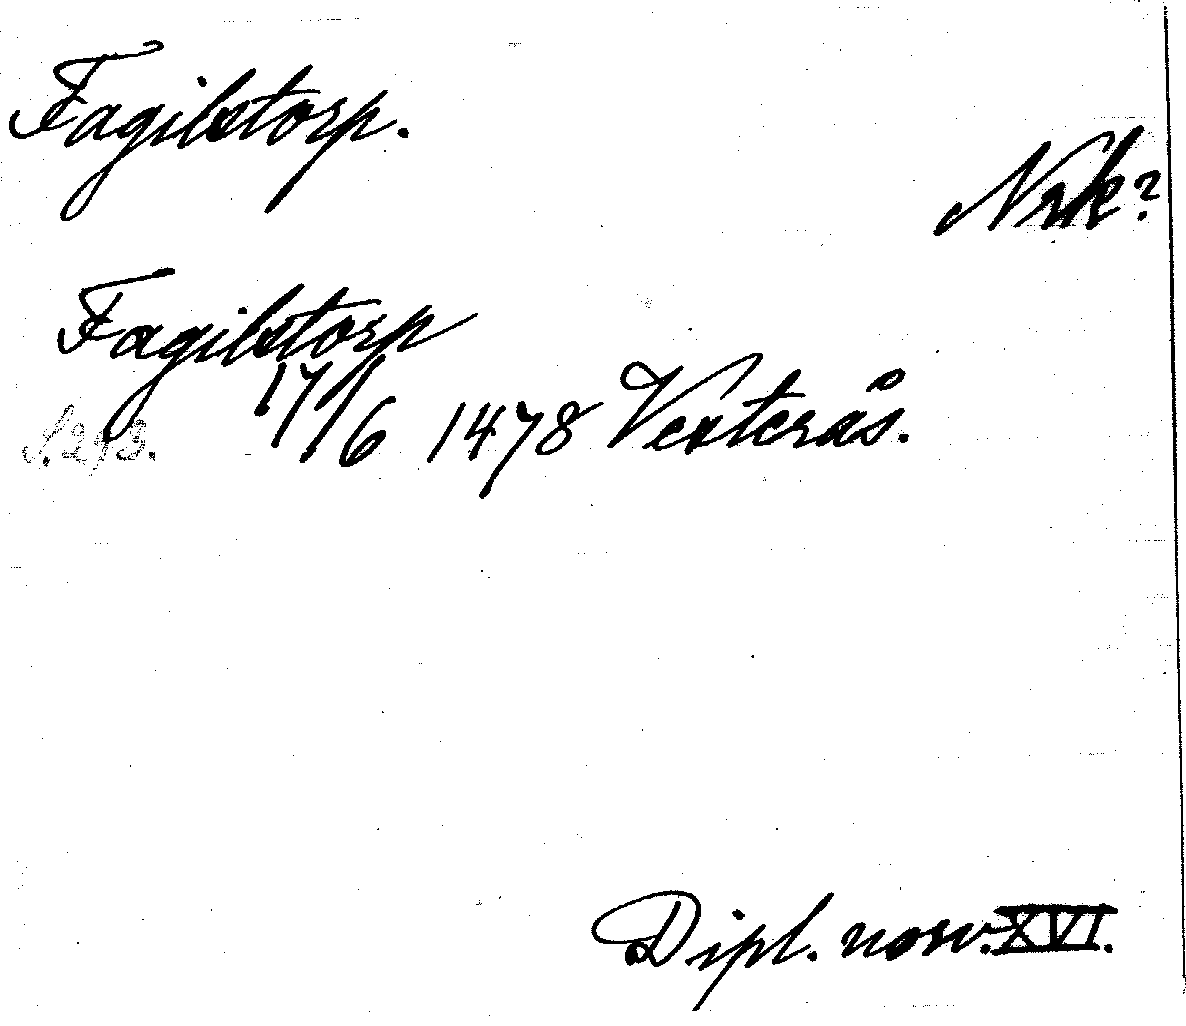 Fagilstorp.
Nrk?
Fagilstorp
17/6 1478 Vesterås.
S. 293.
Dipl. norv. XVI.